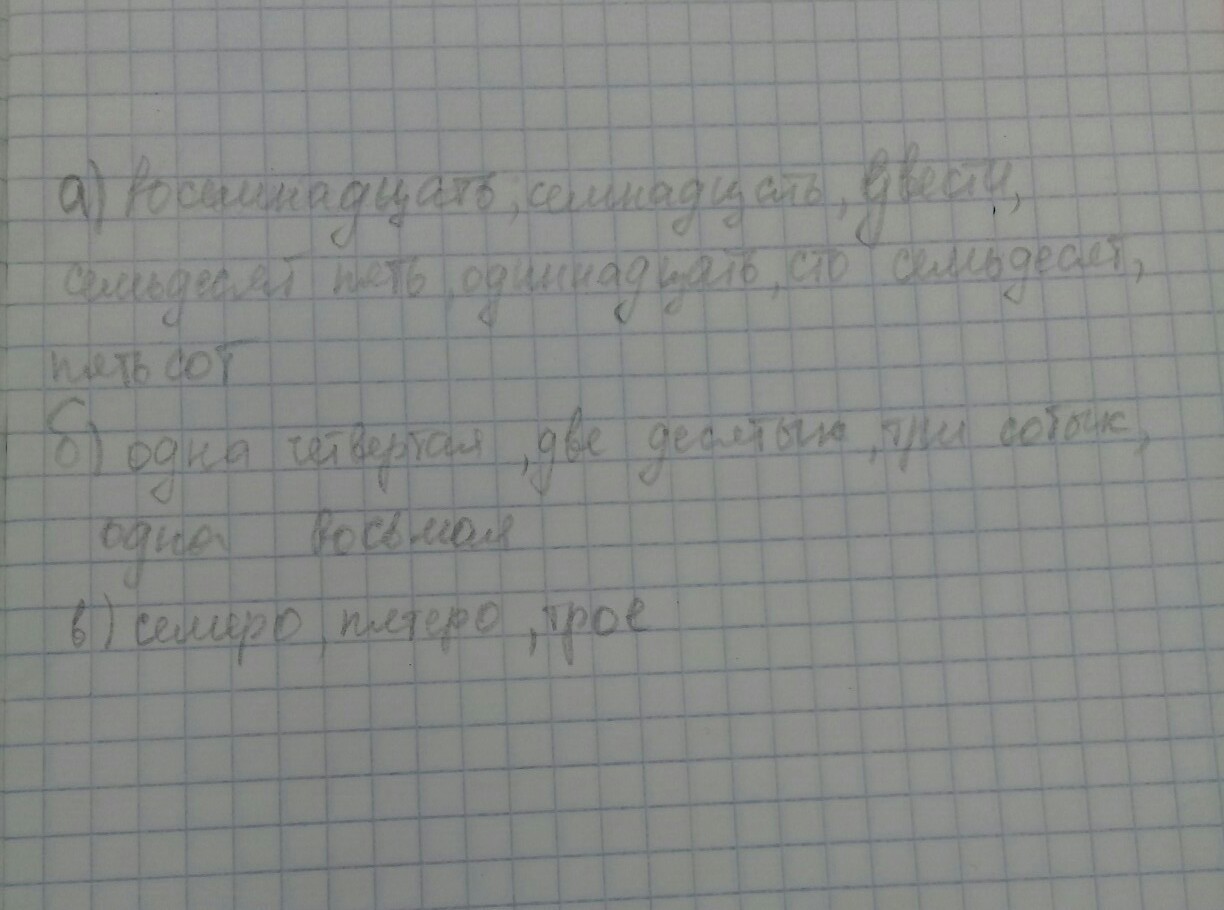 а) восемнадцать, семнадцать, двести,
семьдесят пять, одиннадцать, сто семьдесят,
пятьсот
б) одна четвертая, две десятых, три сотых,
одна восьмая
в) семеро, пятеро, трое